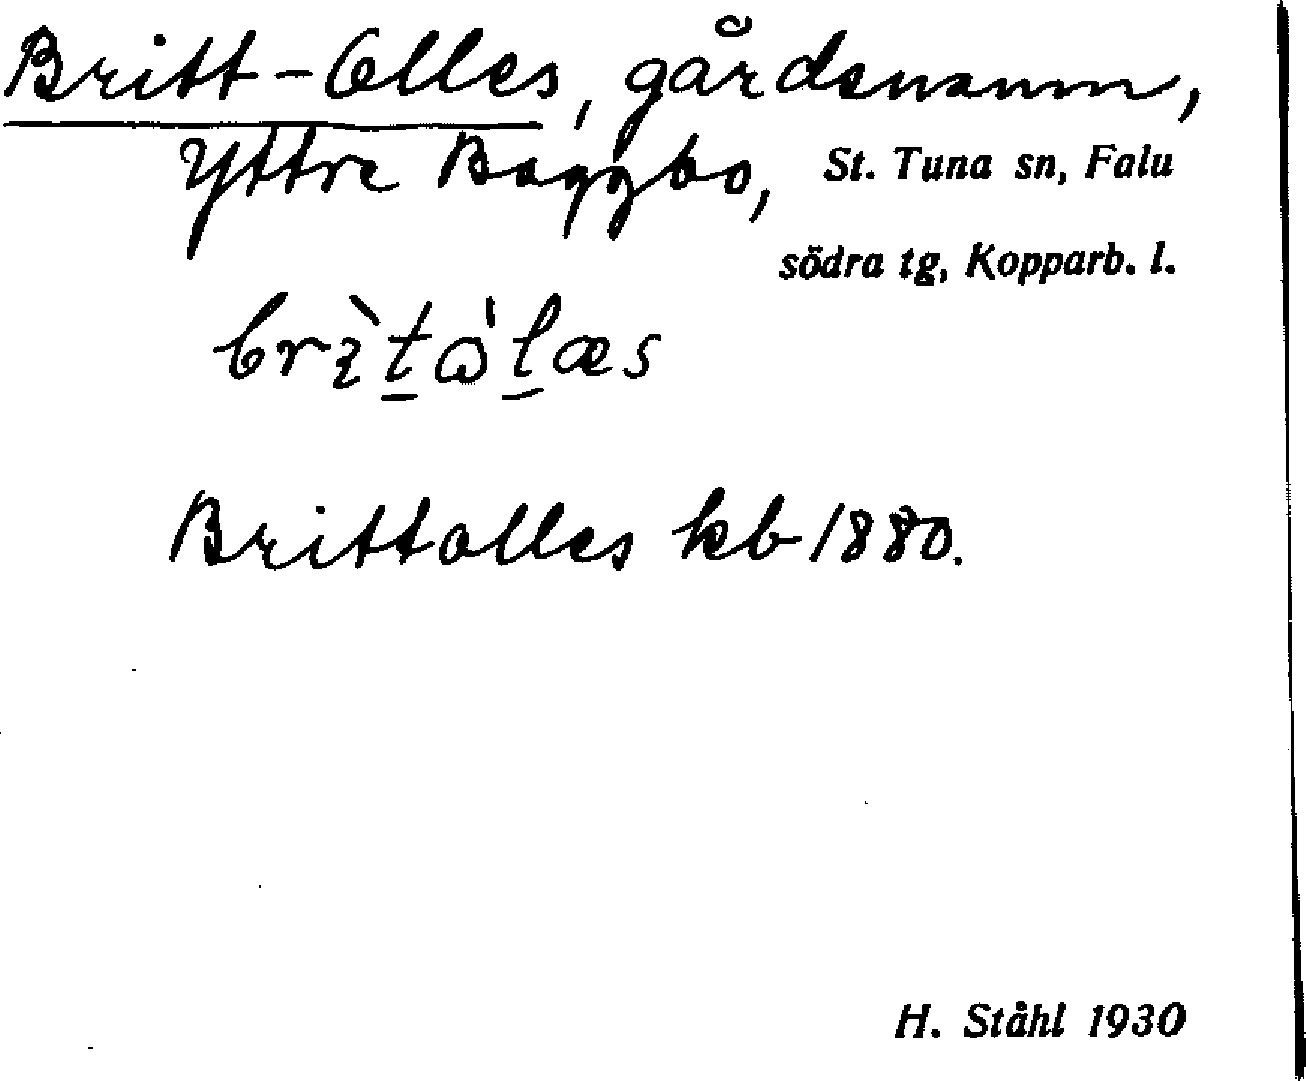 Britt-Olles, gårdsnamn,
Yttre Baggbo, St. Tuna sn, Falu
södra tg, Kopparb. l.
Brittolles kb 1880.
H. Ståhl 1930